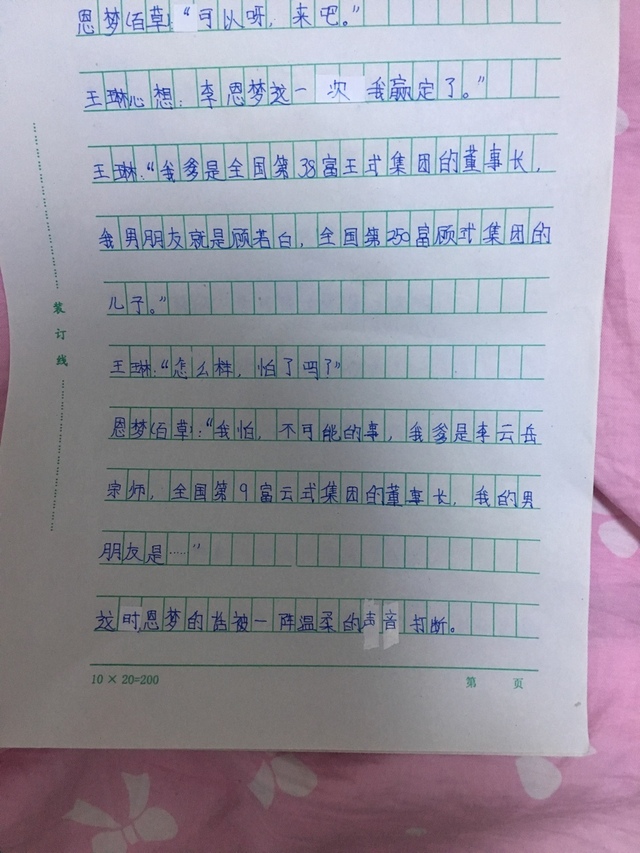 恩梦(百草)“可以呀，来吧。”
王琳心想：李恩梦这一次我赢定了。”
王琳：“我爹是全国第38富王式集团的董事长，
我男朋友就是顾若白，全国第250富顾式集团的
儿子。”
王琳：“怎么样，怕了吗？”
恩梦(百草)：“我怕，不可能的事，我爹是李云岳
宗师，全国第9富云式集团的董事长，我的男
朋友是……”
这时恩梦的话被一阵温柔的声音打断。
装订线
10×20=200 第 页